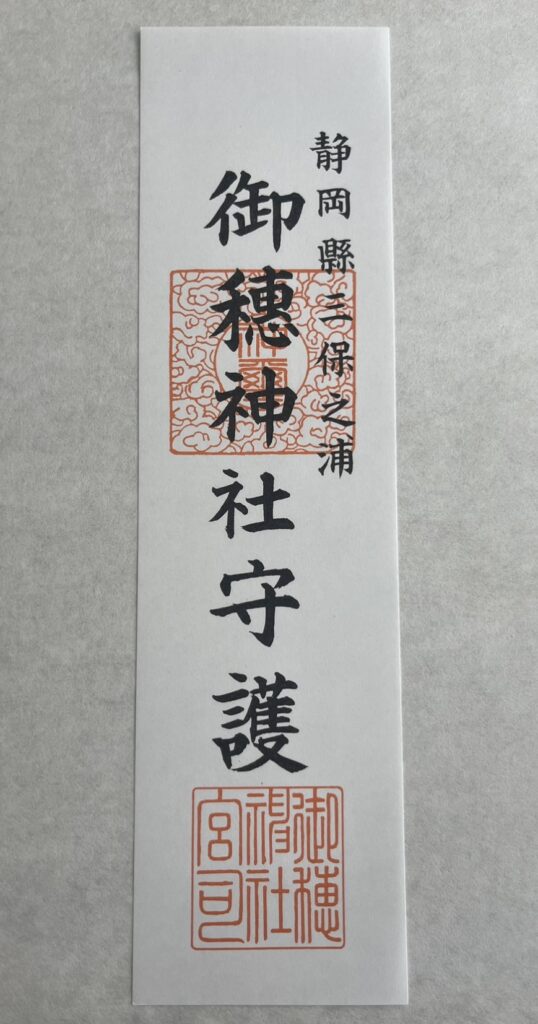 静岡縣三保之浦
御穗神社守護
御穂
神社
宮司